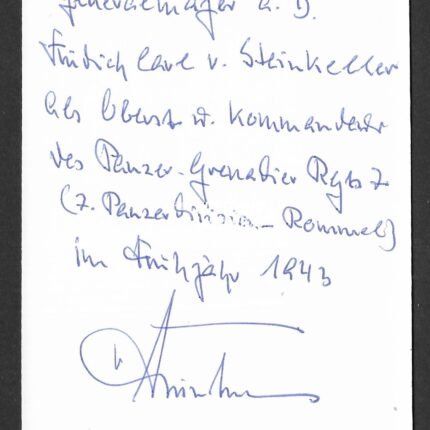 Generalmajor a. D.
Friedrich Carl v. Steinkeller
als Oberst u. Kommandeur
des Panzer-Grenadier Rgts 7
(7. Panzerdivision - Rommel)
im Frühjahr 1943